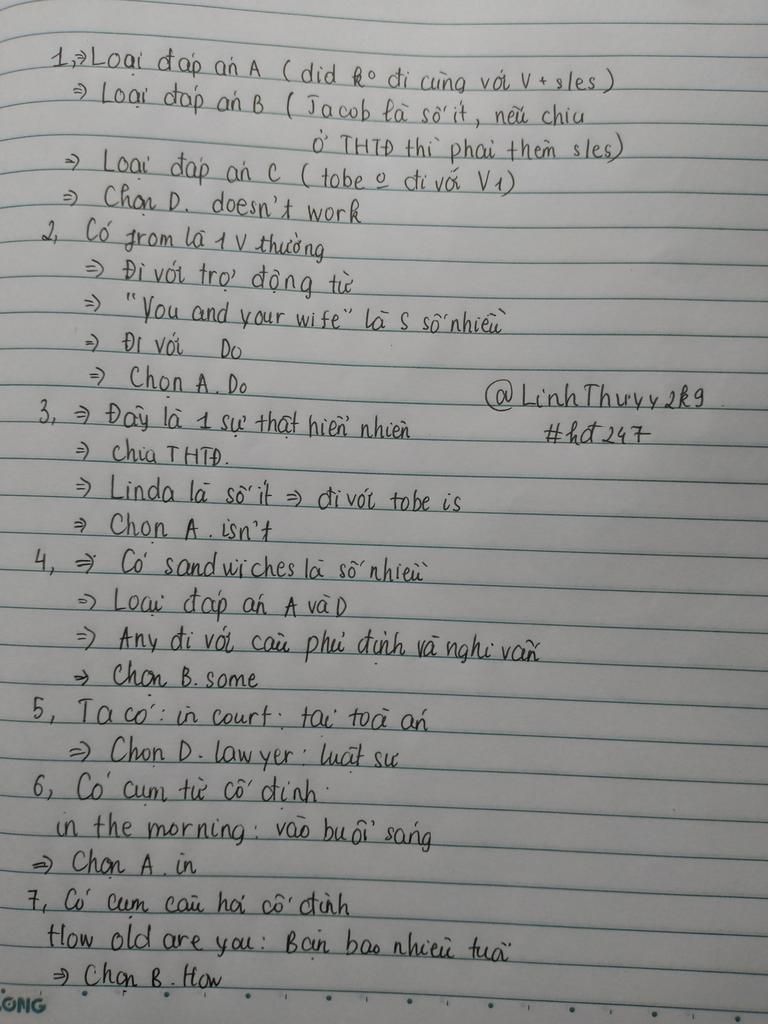 1, ⇒ Loại đáp án A ( did ko đi cùng với V + s/es )
⇒ Loại đáp án B ( Jacob là số ít, nếu chia
ở THTĐ thì phải thêm s/es)
⇒ Loại đáp án C ( tobe o đi với V1)
⇒ Chọn D. doesn't work
2, Có from là 1 V thường
⇒ Đi với trợ động từ
⇒ "You and your wife" là S số nhiều
⇒ Đi với Do
⇒ Chọn A. Do
@LinhThuyy2k9
3, ⇒ Đây là 1 sự thật hiển nhiên
#hđ247
⇒ chia THTĐ.
⇒ Linda là số ít ⇒ đi với tobe is
⇒ Chọn A. isn't
4, ⇒ Có sandwiches là số nhiều
⇒ Loại đáp án A và D
⇒ Any đi với câu phủ định và nghi vấn
⇒ Chọn B. some
5, Ta có : in court : tại toà án
⇒ Chọn D. lawyer : luật sư
6, Có cụm từ cố định
in the morning : vào buổi sáng
⇒ Chọn A. in
7, Có cụm câu hỏi cố định
How old are you : Bạn bao nhiêu tuổi
⇒ Chọn B. How
ONG